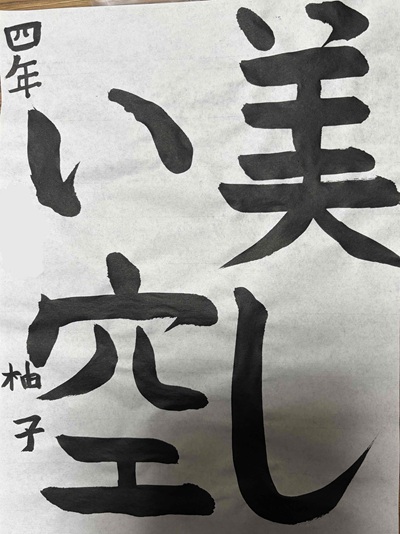 美し
い空
四年
柚子